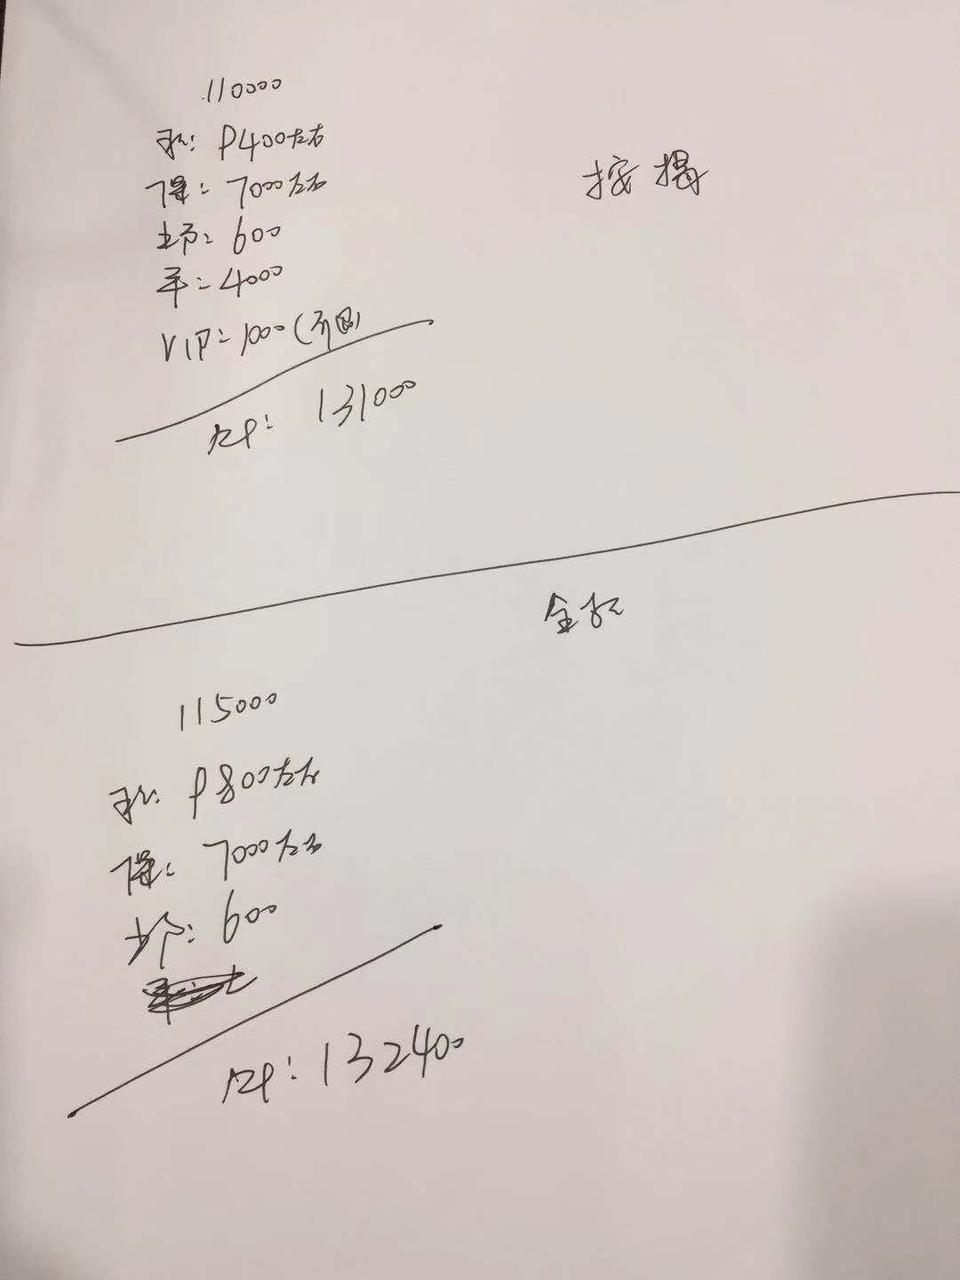 110000
税: 9400左右
保: 7000左右
上户: 600
手: 4000
VIP: 1000(
131000
按揭
全款
115000
税: 9800左右
保: 7000左右
上户: 600
132400